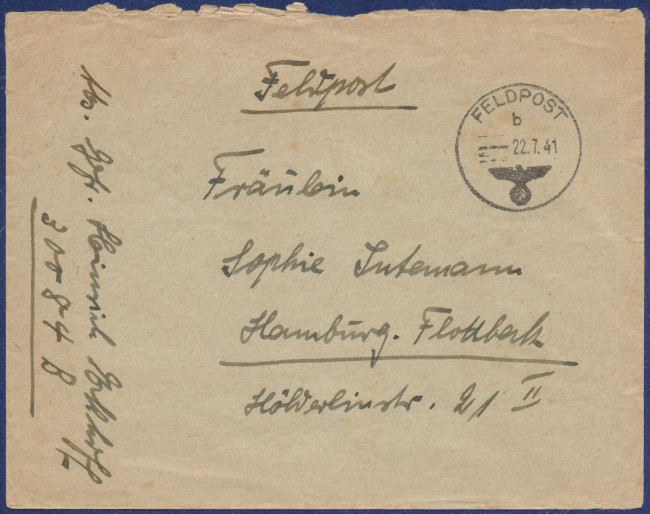 Feldpost
FELDPOST
b
22.7.41
Fräulein
Sophie Intemann
Hamburg. Flottbeck
Hölderlinstr. 21 II
Abs. Gefr. Heinrich